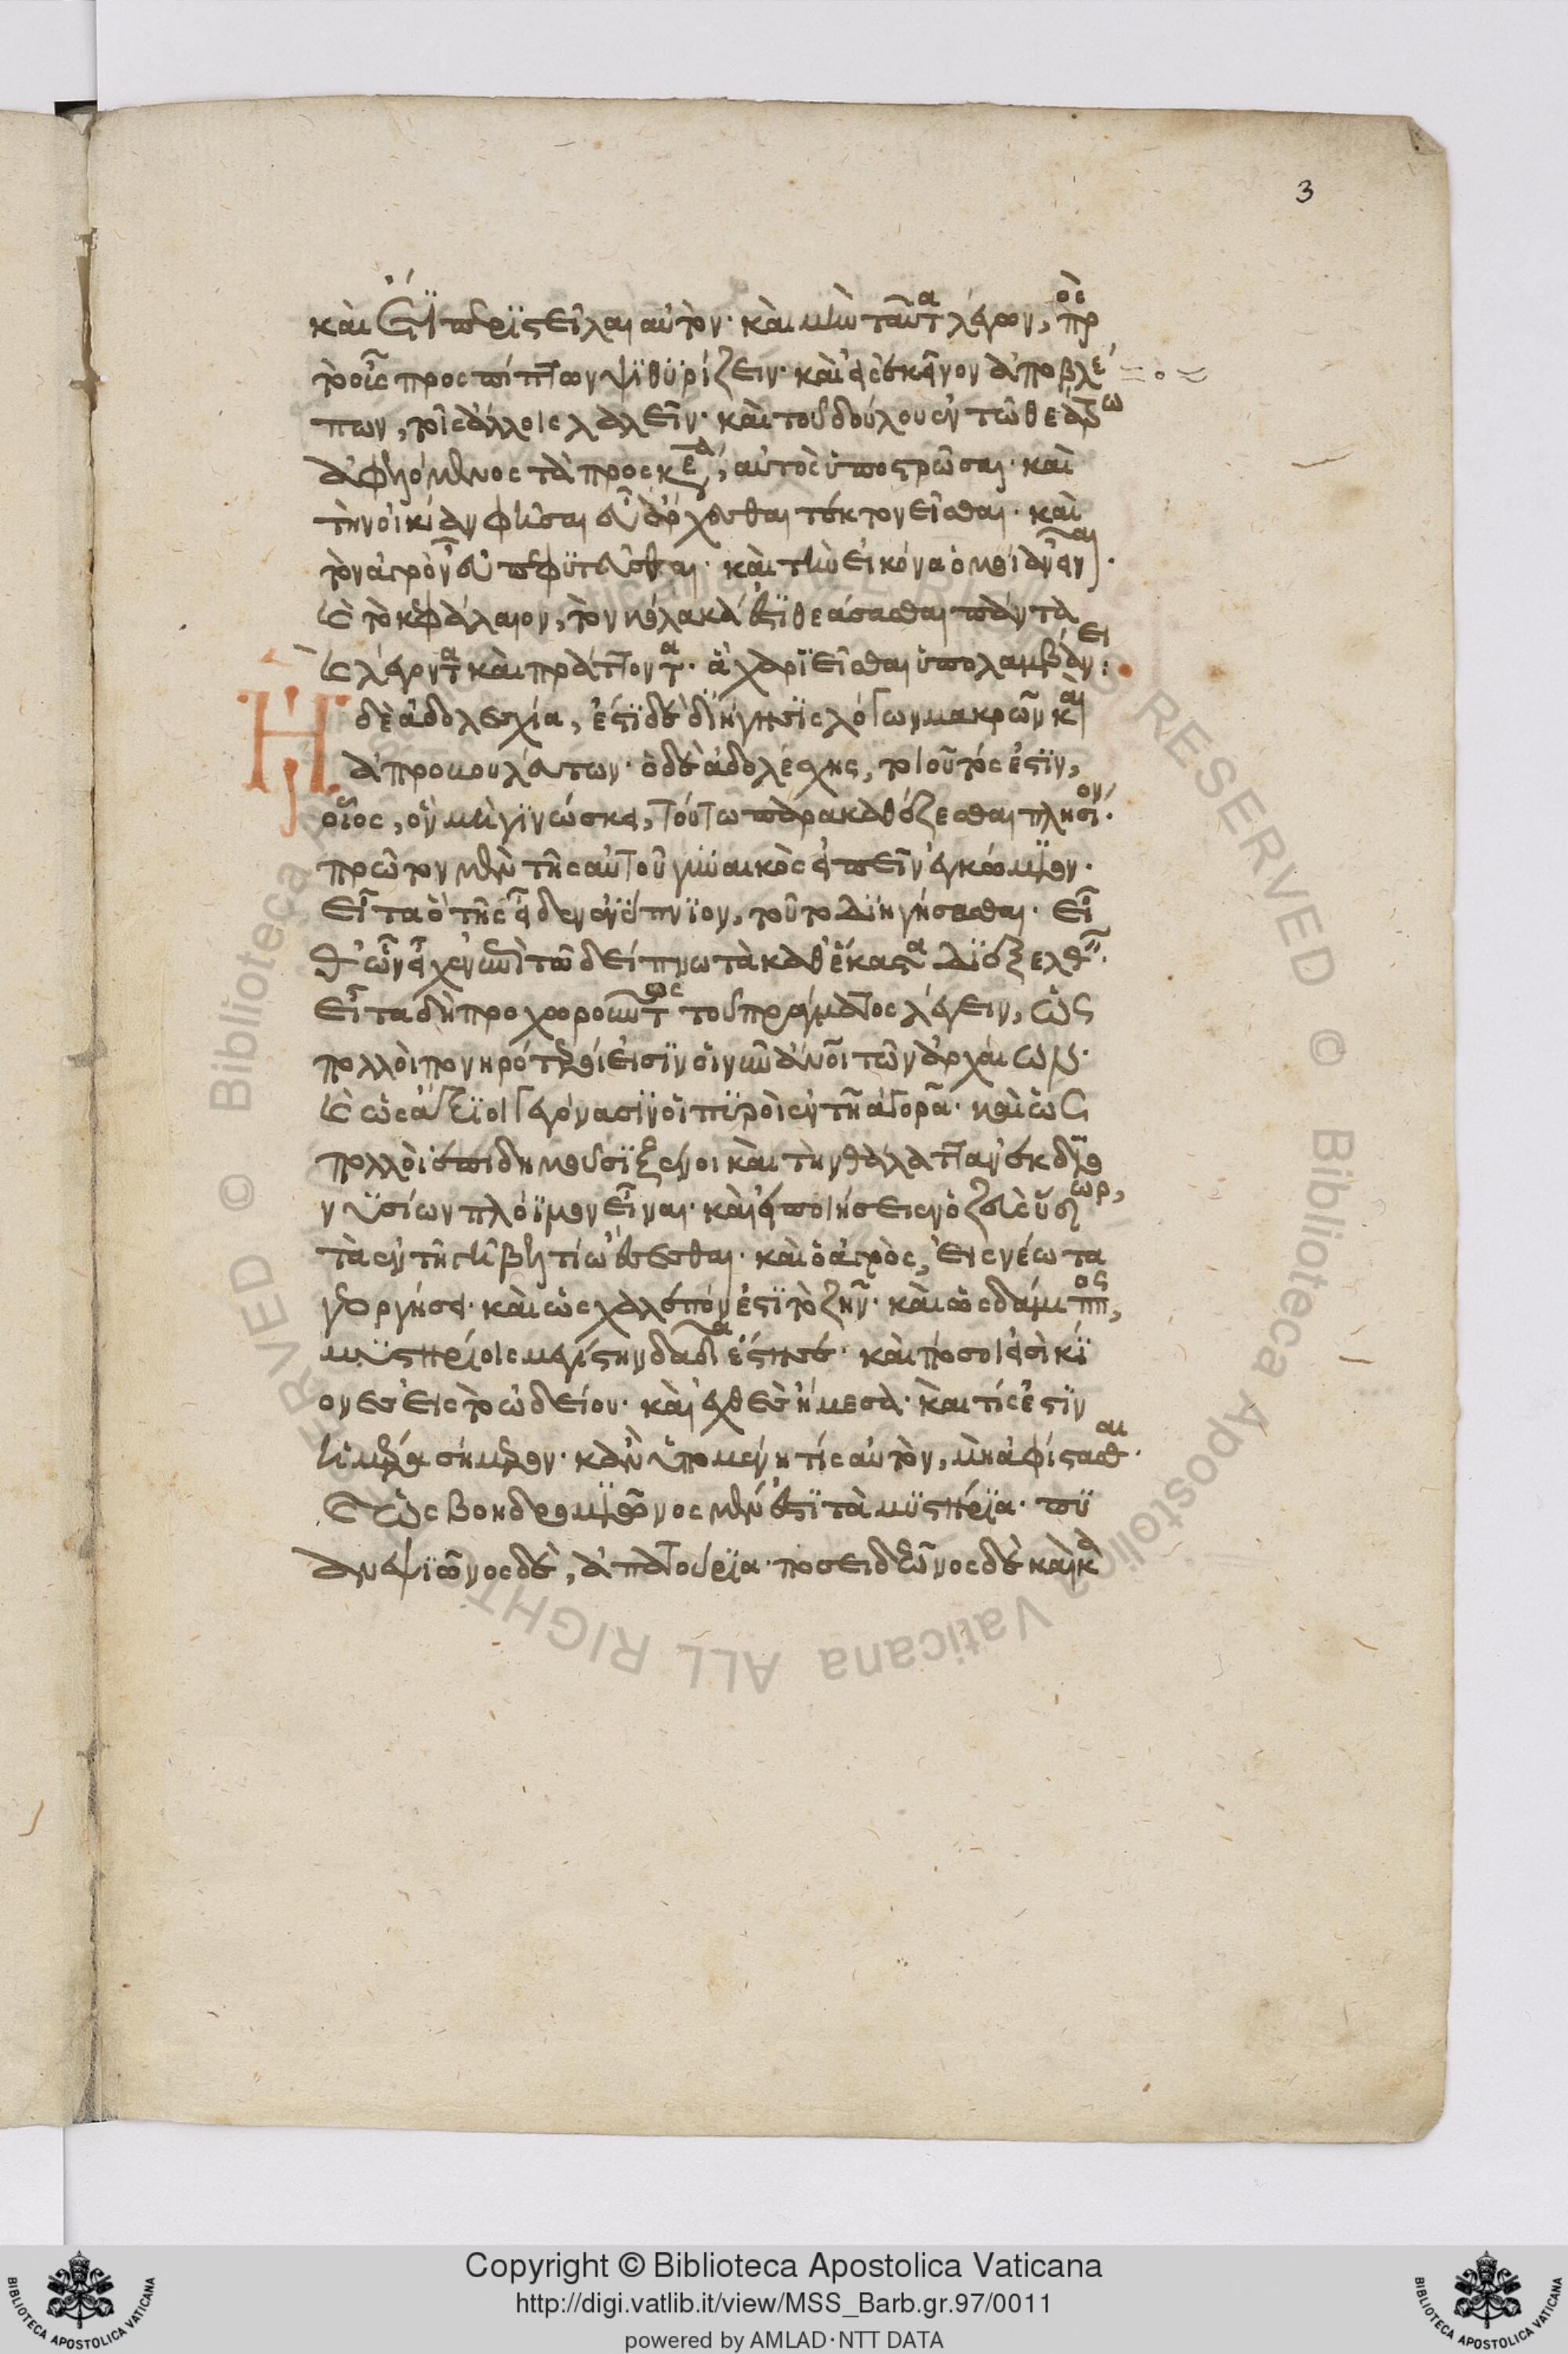 3
καὶ ἔτι περιστεῖλαι αὐτόν· καὶ μὴν ταῦτα λέγων, πρὸς
τὸ οὖς προσπίπτων ψιθυρίζειν· καὶ εἰς ἐκεῖνον ἀποβλέ
πων, τοῖς ἄλλοις λαλεῖν· καὶ τοῦ δούλου ἐν τῶ θεάτρω
ἀφελόμενος τὰ προσκεφά, αὐτὸς ὑποστρῶσαι· καὶ
τὴν οἰκίαν φῆσαι εὖ ἀρχιτεκτονεῖσθαι· καὶ
τὸν ἀγρὸν εὖ πεφυτεῦσθαι· καὶ τὴν εἰκόνα ὁμοίαν εἶναι·
καὶ τὸ κεφάλαιον, τὸν κόλακα ἔστι θεάσασθαι πάντα
καὶ λέγοντα καὶ πράττοντα· ᾧ χαριεῖσθαι ὑπολαμβάνει:
Ἡ δὲ ἀδολεσχία, ἐστὶ δὲ διήγησις λόγων μακρῶν καὶ
ἀπροβουλεύτων· ὁ δὲ ἀδολέσχης, τοιοῦτός ἐστιν,
οἷος, ὃν μὴ γινώσκει, τούτω παρακαθέζεσθαι πλησίον·
πρῶτον μὲν τῆς αὐτοῦ γυναικὸς εἰπεῖν ἐγκώμιον·
εἶτα ὃ τῆς εἶδεν ἐνύπνιον, τοῦτο διηγήσασθαι· εἶ
θ' ὧν εἶχεν ἐπὶ τῶ δείπνω τὰ καθ' ἕκαστα διεξελθεῖν·
εἶτα δὴ προχωροῦντος τοῦ πράγματος λέγειν, ὡς
πολλοὶ πονηρότεροί εἰσιν οἱ νῦν ἄνοι τῶν ἀρχαίων·
καὶ ὡς ἄξιοι γεγόνασιν οἱ πυροὶ ἐν τῆ ἀγορᾶ· καὶ ὡς
πολλοὶ ἐπιδημοῦσι ξένοι καὶ τὴν θάλατταν ἐκ διο
νυσίων πλόϊμον εἶναι· καὶ εἰ ποιήσειεν ὁ ζεὺς ὕδωρ,
τὰ ἐν τῆ γῆ βελτίω ἔσεσθαι· καὶ ὁ ἀγρὸς, εἰς νέωτα
γεωργήσει· καὶ ὡς χαλεπόν ἐστι τὸ ζῆν· καὶ ὡς δάμιππος,
μυστηρίοις μεγίστην δᾶδα ἔστησε· καὶ πόσοι εἰσὶ κί
ονες εἰς τὸ ὠδεῖον· καὶ χθὲς ἤμεσα· καὶ τίς ἐστιν
ἡμέρα σήμερον· κἂν ὑπομένη τις αὐτὸν, μὴ ἀφίστασθαι·
καὶ ὡς βοηδρομιῶνος μέν ἐστι τὰ μυστήρια· πυ
ανεψιῶνος δὲ, ἀπατούρια· ποσειδεῶνος δὲ καὶ κα
RESERVED © Biblioteca Apostolica Vaticana ALL RIGHTS RESERVED © Biblioteca
Copyright © Biblioteca Apostolica Vaticana
http://digi.vatlib.it/view/MSS_Barb.gr.97/0011
powered by AMLAD·NTT DATA
BIBLIOTECA APOSTOLICA VATICANA
BIBLIOTECA APOSTOLICA VATICANA